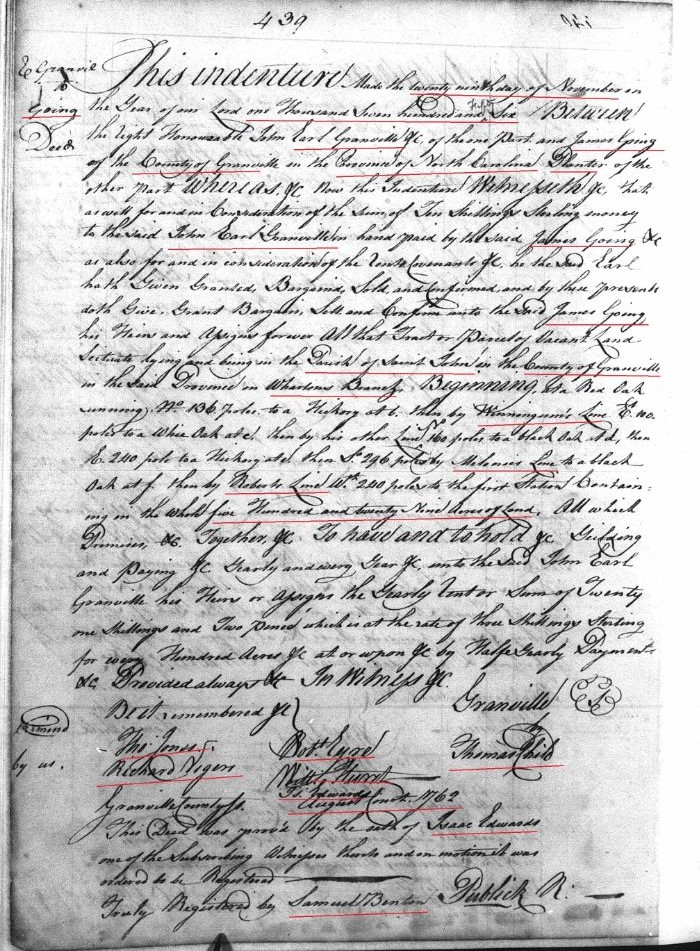 439
E Granvil
to
Going
Deed
This indenture Made the twenty ninth day of November in
the Year of our Lord one Thousand Seven hundred and Six Between
the Right Honourable John Earl Granville &c. of the one Part and James Going
of the County of Granville in the Province of North Carolina Planter of the
other part Whereas, &c Now this Indenture Witnesseth &c, that
as well for and in Consideration of the Sum of Ten Shillings Sterling money
to the said John Earl Granville in hand paid by the said James Going &c
as also for and in consideration of the Rents Covenants &c, he the said Earl
hath Given Granted, Bargaind, Sold, and Confirmed and by these presents
doth Give, Grant Bargain, Sell and Confirm unto the Said James Going
his Heirs and Assigns forever All that Tract or Parcel of Vacant Land
Scituate lying and being in the Parish of Saint John in the County of Granville
in the Said Province on Whartons Branch Beginning, at a Red Oak
running No. 136 poles to a Hickory at b. then by Line E. 100
poles to a White Oak at c. then by his other Line No 160 poles to a black Oak at d, then
E. 240 pole to a Hickory at e. then So 296 poles by Line to a black
Oak at f. then by Roberts Line Wt. 240 poles to the first Station Contain=
ing in the whole five Hundred and twenty Nine Acres of Land, All which
Premises, &c. Together, &c. To have and to hold &c Yeilding
and paying &c Yearly and every Year &c unto the Said John Earl
Granville his Heirs or Assigns the Yearly Rent or Sum of Twenty
one Shillings and Two pence which is at the rate of three Shillings Sterling
for every Hundred Acres &c at or upon &c by Halfe Yearly Payment
&c Provided always &c In Witness &c.
Be it remembered &c Granville
Thos. Jones Robt Eyre Thomas Child
by us. Richard Vigers Willm Hurst
Is. Edwards
Granville County Ss. August Court. 1762
This Deed was prov'd by the oath of Isaac Edwards
one of the Subscribing Witnesses thereto and on motion it was
ordered to be Registered
Truly Registered by Samuel Benton Publick R: